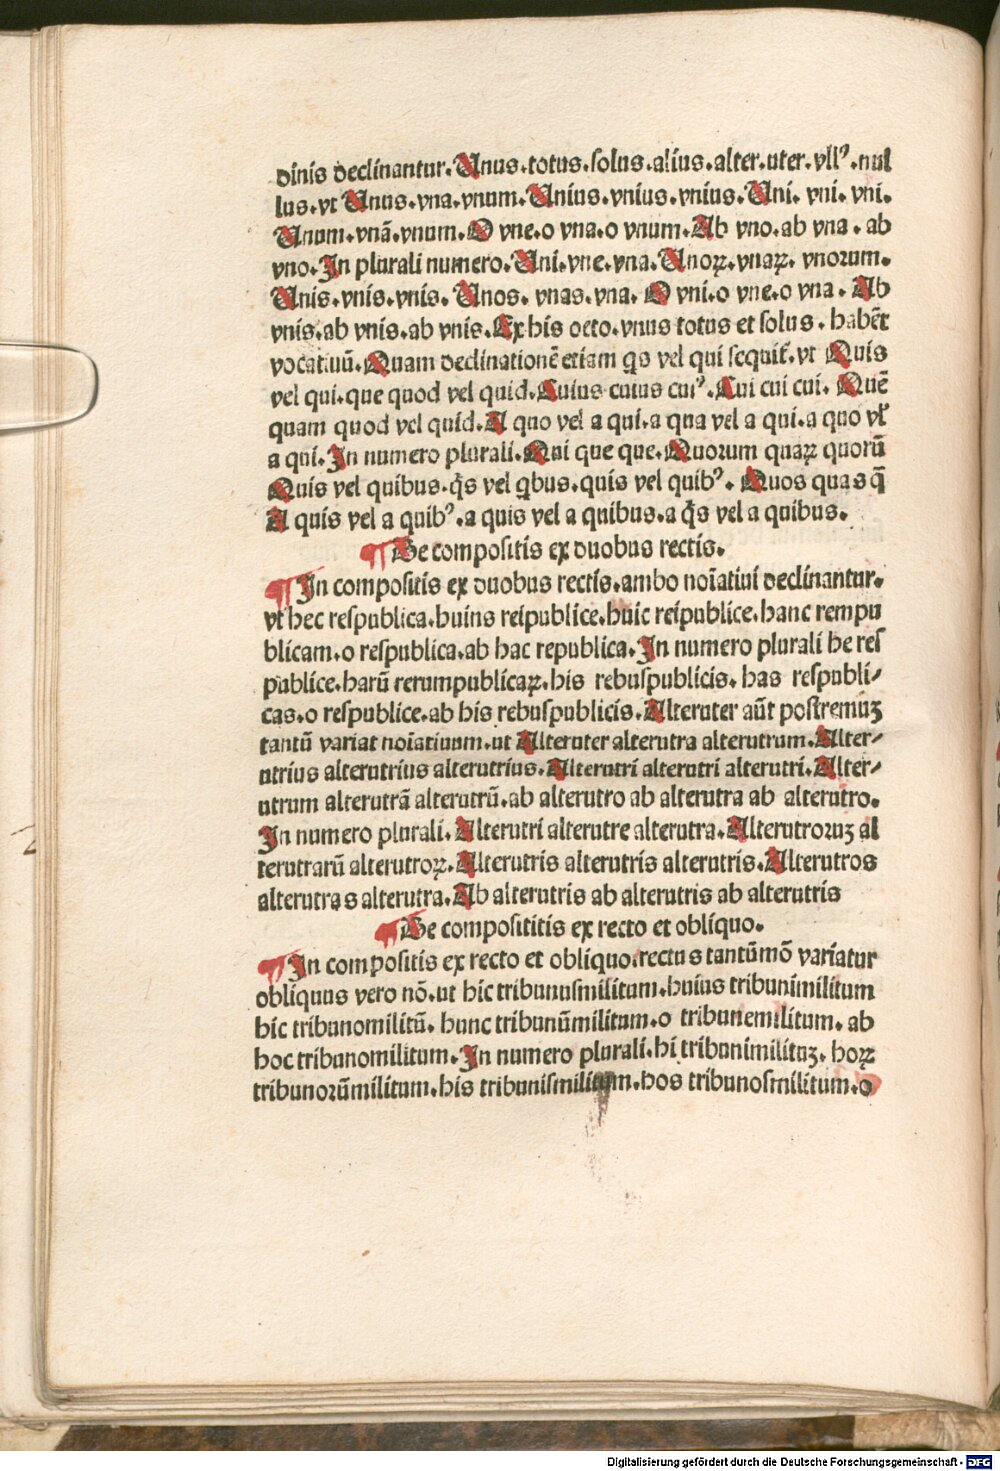 dinis declinantur. Unus. totus. solus. alius. alter. uter. vllꝰ. nul
lus. vt Unus. vna. vnum. Unius. vnius. vnius. Uni. vni. vni.
Unum. vnã. vnum. O vne. o vna. o vnum. Ab vno. ab vna. ab
vno. In plurali numero. Uni. vne. vna. Unoꝝ. vnaꝝ. vnorum.
Unis. vnis. vnis. Unos. vnas. vna. O vni. o vne. o vna. Ab
vnis. ab vnis. ab vnis. Ex his octo. vnus totus et solus. habẽt
vocatiuũ. Quam declinationẽ etiam qs vel qui sequit᷑. vt Quis
vel qui. que quod vel quid. Cuius cuius cuiꝰ. Cui cui cui. Quẽ
quam quod vel quid. A quo vel a qui. a qua vel a qui. a quo vl̃
a qui. In numero plurali. Qui que que. Quorum quaꝝ quorũ
Quis vel quibus. q̃s vel qbus. quis vel quibꝰ. Quos quas q̃
A quis vel a quibꝰ. a quis vel a quibus. a q̃s vel a quibus.
¶ De compositis ex duobus rectis.
¶ In compositis ex duobus rectis. ambo noĩatiui declinantur.
vt hec respublica. huius reipublice. huic reipublice. hanc rempu
blicam. o respublica. ab hac republica. In numero plurali he res
publice. harũ rerumpublicaꝝ. his rebuspublicis. has respubli⸗
cas. o respublice. ab his rebuspublicis. Alteruter aũt postremuꝫ
tantũ variat noĩatiuum. ut Alteruter alterutra alterutrum. Alter⸗
utrius alterutrius alterutrius. Alterutri alterutri alterutri. Alter⸗
utrum alterutrã alterutrũ. ab alterutro ab alterutra ab alterutro.
In numero plurali. Alterutri alterutre alterutra. Alterutroruꝫ al
terutrarũ alterutroꝝ. Alterutris alterutris alterutris. Alterutros
alterutras alterutra. Ab alterutris ab alterutris ab alterutris
¶ De composititis ex recto et obliquo.
¶ In compositis ex recto et obliquo. rectus tantũmõ variatur
obliquus vero nõ. ut hic tribunusmilitum. huius tribunimilitum
hic tribunomilitũ. hunc tribunũmilitum. o tribunemilitum. ab
hoc tribunomilitum. In numero plurali. hi tribunimilituꝫ. hoꝝ
tribunorũmilitum. his tribunismilitum. hos tribunosmilitum. o
Digitalisierung gefördert durch die Deutsche Forschungsgemeinschaft - DFG